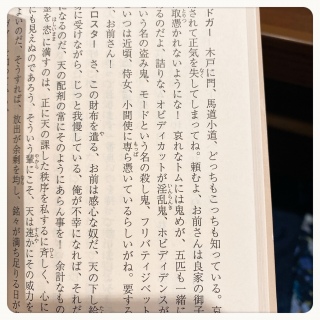 ドガー　木戸に門、馬道小道、どっちもこっちも知っている。哀
されて正気を失してしまってね。頼むよ、お前さんは良家の御子
取憑かれないようにな！　哀れなトムには鬼めが、五匹も一緒に
るのだよ、詰りな、オビディカットが淫乱鬼、ホビディダンスが
いう名の盗み鬼、モードという名の殺し鬼、フリバティジベット
いつは近頃、侍女、小間使に専ら憑いているらしいがね。要する
、お前さん！
ロスター　さ、この財布を遣る、お前は感心な奴だ、天の下し給
に受けながら、じっと我慢している、俺が不幸になれば、それだ
になるのだ、天の配剤の常にそのようにあらん事を！　余計なもの
を恣に満すのは、正に天の課した秩序を私するに斉しく、心に
にも見えぬのであろう、そういう輩にこそ、天は速かにその威力を
よいのだ、そうすれば、放出が余剰を均し、銘々が満ち足りる日が